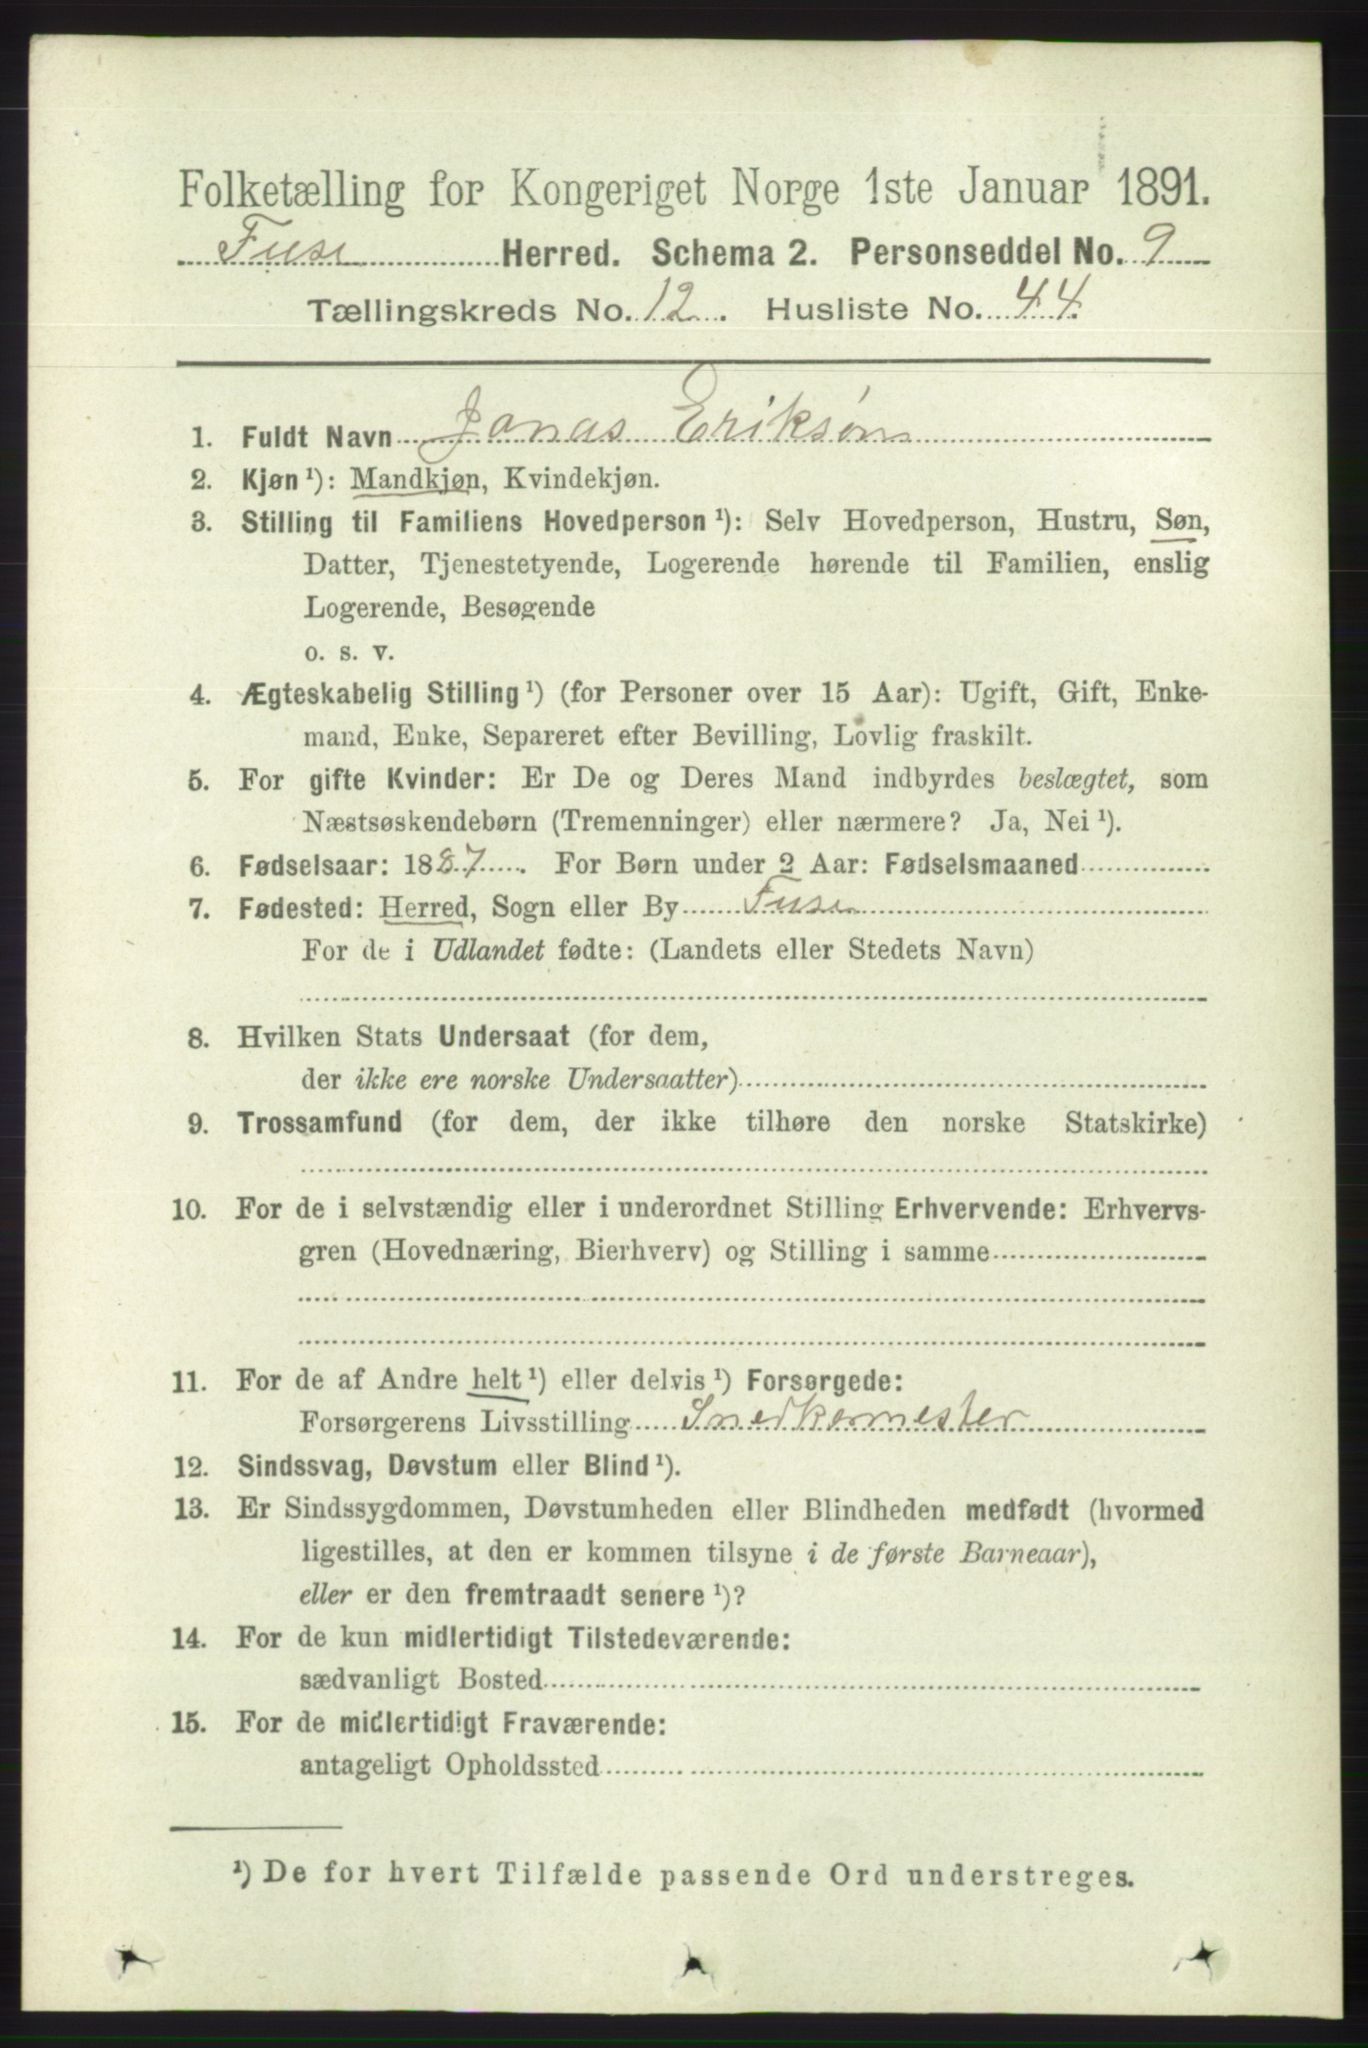 Folketælling for Kongeriget Norge 1ste Januar 1891.
Fuse Herred. Schema 2. Personseddel No. 9
Tællingskreds No. 12. Husliste No. 44.
1. Fuldt Navn Jonas Eriksøn
2. Kjøn ¹): Mandkjøn, Kvindekjøn.
3. Stilling til Familiens Hovedperson ¹): Selv Hovedperson, Hustru, Søn,
Datter, Tjenestetyende, Logerende hørende til Familien, enslig
Logerende, Besøgende
o. s. v.
4. Ægteskabelig Stilling ¹) (for Personer over 15 Aar): Ugift, Gift, Enke-
mand, Enke, Separeret efter Bevilling, Lovlig fraskilt.
5. For gifte Kvinder: Er De og Deres Mand indbyrdes beslægtet, som
Næstsøskendebørn (Tremenninger) eller nærmere? Ja, Nei ¹).
6. Fødselsaar: 1887. For Børn under 2 Aar: Fødselsmaaned
7. Fødested: Herred, Sogn eller By Fuse
For de i Udlandet fødte: (Landets eller Stedets Navn)
8. Hvilken Stats Undersaat (for dem,
der ikke ere norske Undersaatter)
9. Trossamfund (for dem, der ikke tilhøre den norske Statskirke)
10. For de i selvstændig eller i underordnet Stilling Erhvervende: Erhvervs-
gren (Hovednæring, Bierhverv) og Stilling i samme
11. For de af Andre helt ¹) eller delvis ¹) Forsørgede:
Forsørgerens Livsstilling Snedkermester
12. Sindssvag, Døvstum eller Blind ¹).
13. Er Sindssygdommen, Døvstumheden eller Blindheden medfødt (hvormed
ligestilles, at den er kommen tilsyne i de første Barneaar),
eller er den fremtraadt senere ¹)?
14. For de kun midlertidigt Tilstedeværende:
sædvanligt Bosted
15. For de midlertidigt Fraværende:
antageligt Opholdssted
¹) De for hvert Tilfælde passende Ord understreges.